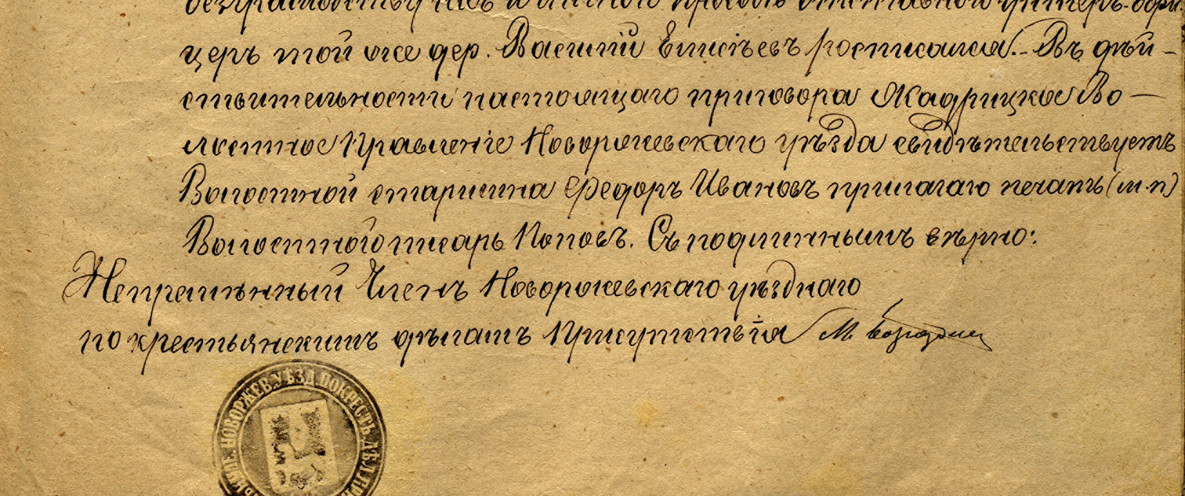 безграмотству ихъ и личной просьбѣ отставной унтеръ-офи-
церъ той же дер. Василiй Елисѣевъ росписался. – Въ дѣй-
ствительности настоящаго приговора Жадрицкое Во-
лостное Правленiе Новоржевскаго уѣзда свидѣтельствуетъ
Волостной старшина Ѳедоръ Ивановъ прилагаю печать (м.п)
Волостного писарь Поповъ. Съ подлиннымъ вѣрно:
Непремѣнный Членъ Новоржевскаго уѣзднаго
по крестьянскимъ дѣламъ Присутствiя М.
НОВОРЖЕВ. УѢЗД. ПО КРЕСТЬ. ДѢЛ.